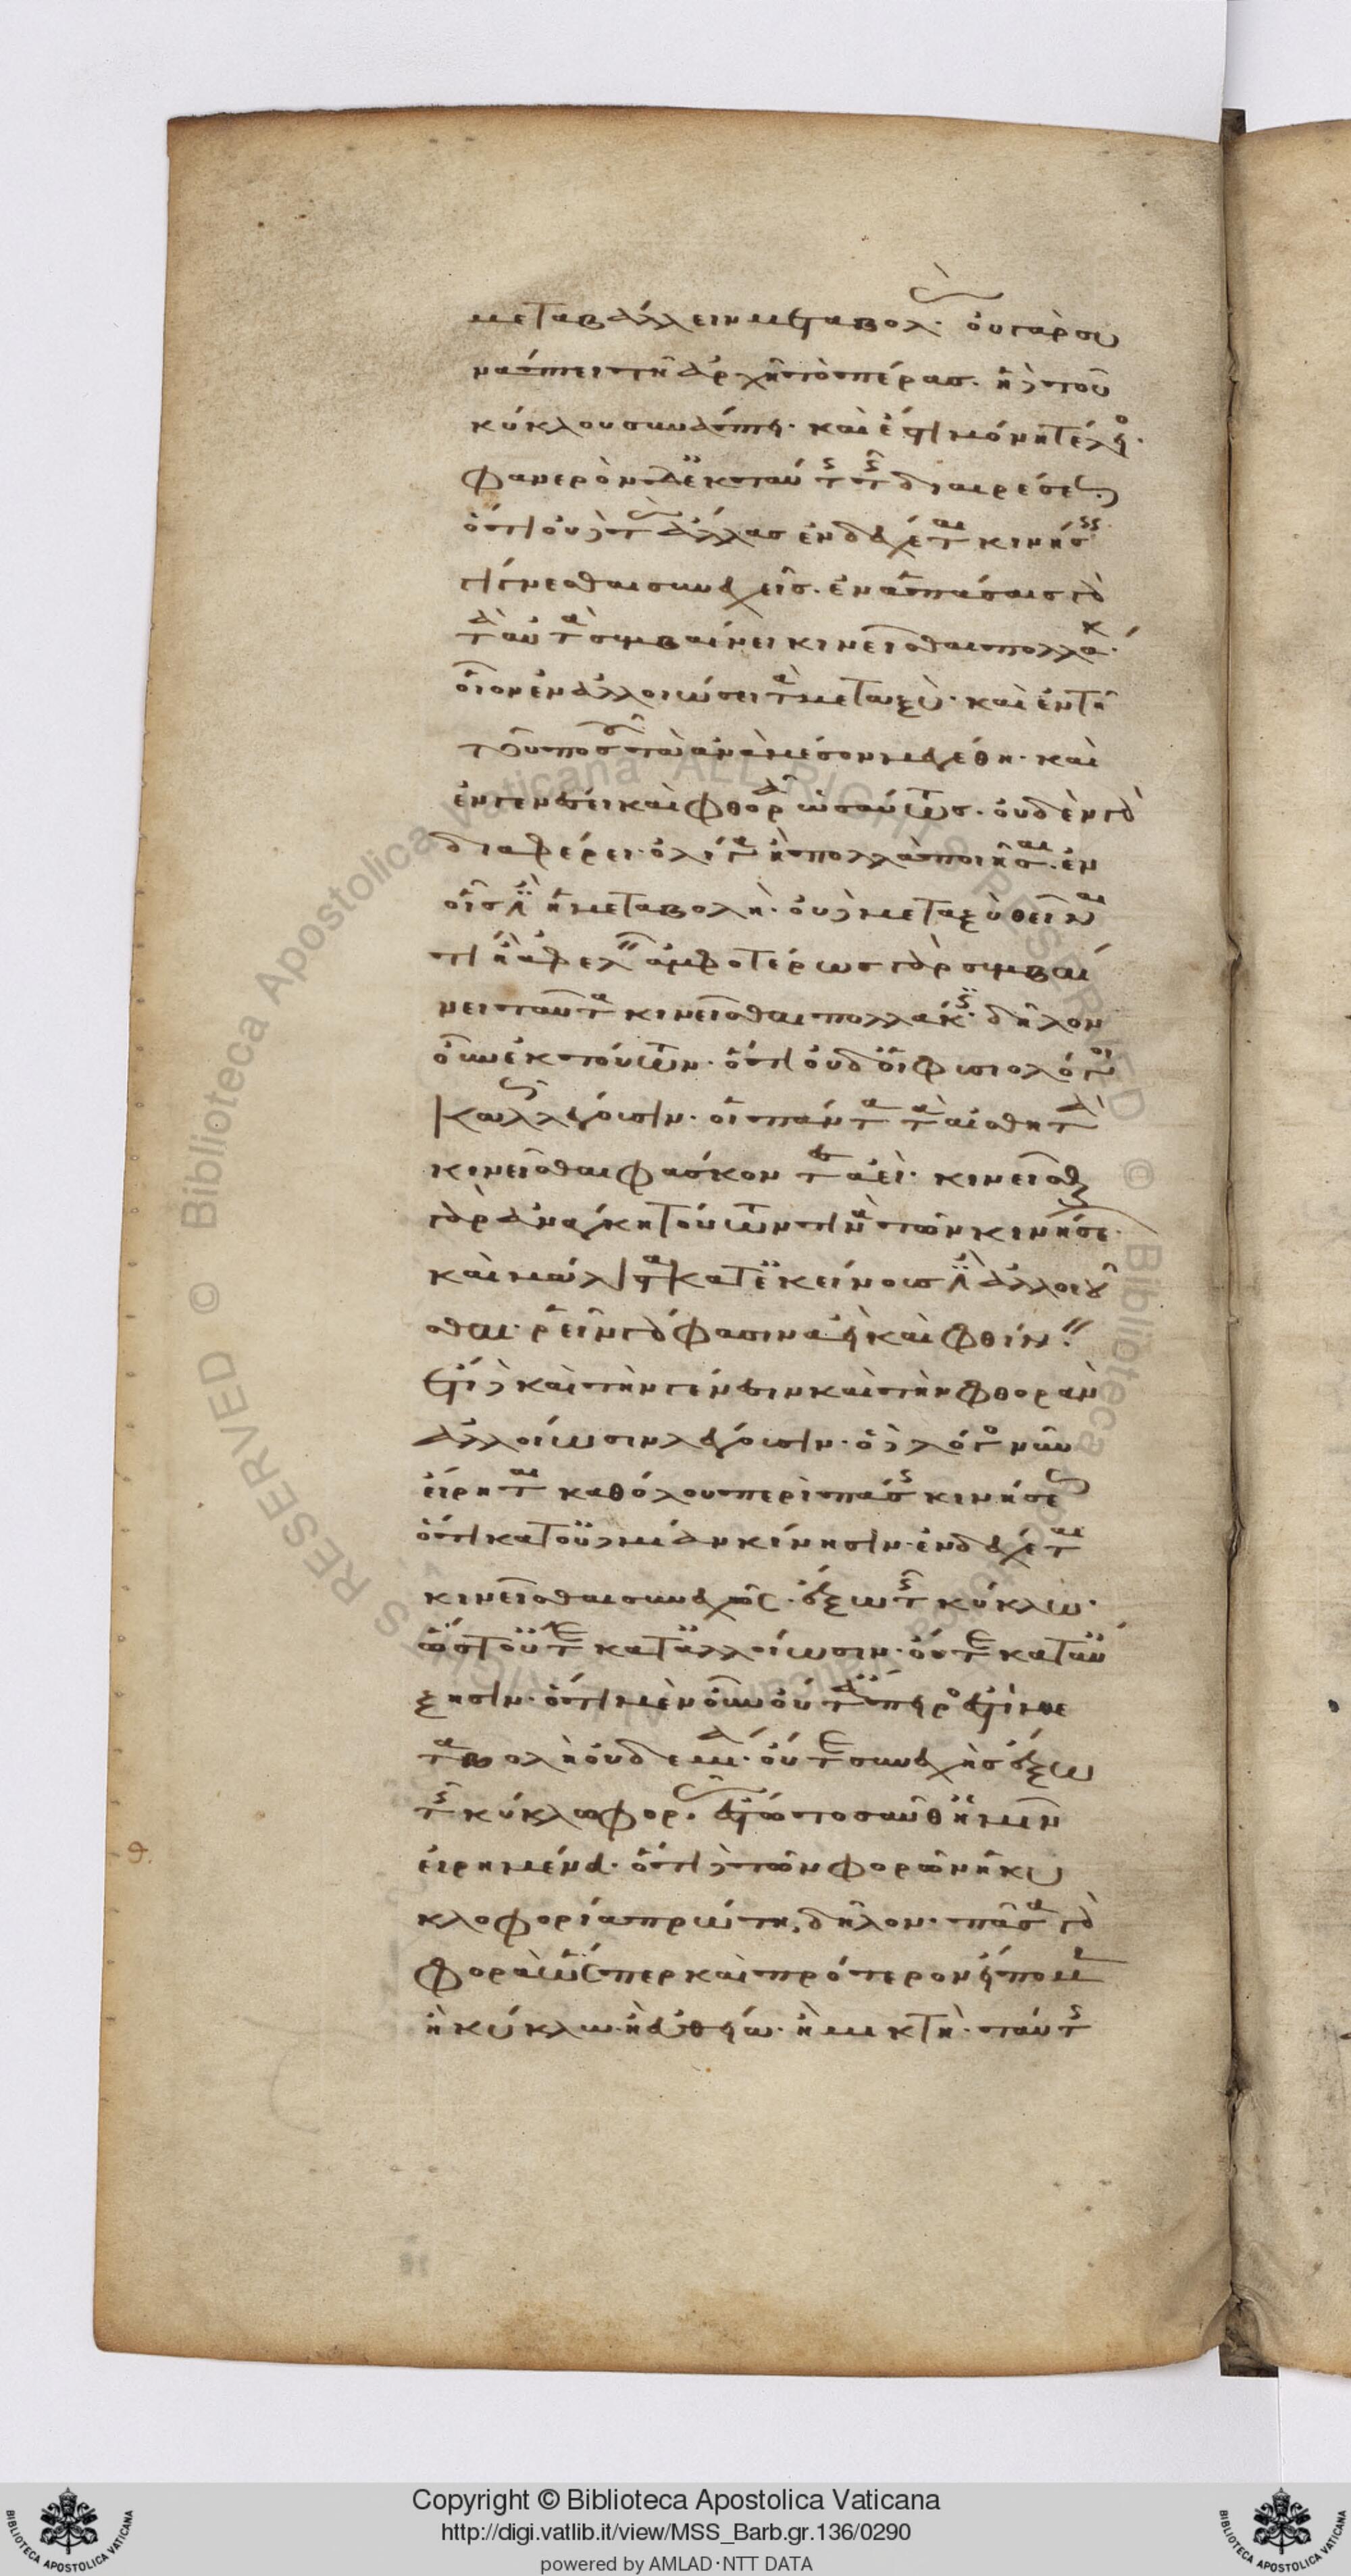 μεταβάλλειν μεταβολάς. οὐ γὰρ συ
νάπτει τῆ ἀρχῆ τὸ πέρας. ἡ δὲ τοῦ
κύκλου συνάπτει. καὶ ἔστι μόνη τέλειος.
φανερὸν δὲ ἐκ ταύτης τῆς διαιρέσεως
ὅτι οὐδὲ τὰς ἄλλας ἐνδέχεται κινήσεις
γίγνεσθαι συνεχεῖς. ἐν ἁπάσαις γὰρ
ταὐτὰ συμβαίνει κινεῖσθαι πολλάκις.
οἷον ἐν ἀλλοιώσει τὰ μεταξύ. καὶ ἐν τῆ
τοῦ ποσοῦ τὰ ἀνὰ μέσον μεγέθη. καὶ
ἐν γενέσει καὶ φθορᾶ ὡσαύτως. οὐδὲν γὰρ
διαφέρει ὀλίγα ἢ πολλὰ ποιῆσαι. ἐν
οἷς ἐστὶν ἡ μεταβολή. οὐδὲ μεταξὺ θεῖναί
τι ἢ ἀφελεῖν. ἀμφοτέρως γὰρ συμβαί
νει ταὐτὰ κινεῖσθαι πολλάκις. δῆλον
οὖν ἐκ τούτων. ὅτι οὐδ' οἱ φυσιολόγοι
καλῶς λέγουσιν. οἱ πάντα τὰ αἰσθητὰ
κινεῖσθαι φάσκοντες ἀεί. κινεῖσθαι
γὰρ ἀνάγκη τούτων τινὰ τῶν κινήσεων.
καὶ μάλιστα κατ' ἐκείνοις ἐστὶν ἀλλοιοῦ
σθαι. ῥεῖν γὰρ φασιν ἀεὶ καὶ φθίνειν.
ἔτι δὲ καὶ τὴν γένεσιν καὶ τὴν φθορὰν
ἀλλοίωσιν λέγουσιν. ὁ δὲ λόγος νῦν
εἴρηται καθόλου περὶ πάσης κινήσεως
ὅτι κατ' οὐδεμίαν κίνησιν ἐνδέχεται
κινεῖσθαι συνεχῶς. ἔξω τῆς κύκλω.
ὥστ' οὔτε κατ' ἀλλοίωσιν. οὔτε κατ' αὔ
ξησιν. ὅτι μὲν οὖν οὔτ' ἄπειρός ἐστι με
ταβολὴ οὐδεμία. οὔτε συνεχὴς ἔξω
τῆς κύκλω φορᾶς. ἔστω τοσαῦθ' ἡμῖν
εἰρημένα. ὅτι δὲ τῶν φορῶν ἡ κυ
κλοφορία πρώτη, δῆλον. πᾶσα γὰρ
φορὰ ὥσπερ καὶ πρότερον εἴπομεν
ἢ κύκλω. ἢ εὐθεία. ἢ μικτή. ταύτης
θ.
Copyright © Biblioteca Apostolica Vaticana
http://digi.vatlib.it/view/MSS_Barb.gr.136/0290
powered by AMLAD·NTT DATA